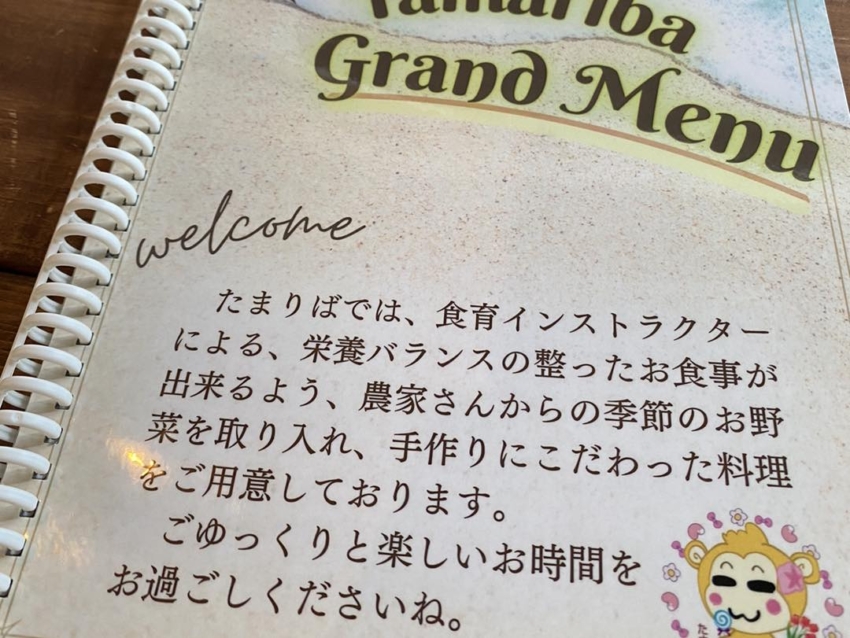 Tamariba
Grand Menu
welcome
たまりばでは、食育インストラクター
による、栄養バランスの整ったお食事が
出来るよう、農家さんからの季節のお野
菜を取り入れ、手作りにこだわった料理
をご用意しております。
ごゆっくりと楽しいお時間を
お過ごしくださいね。
た